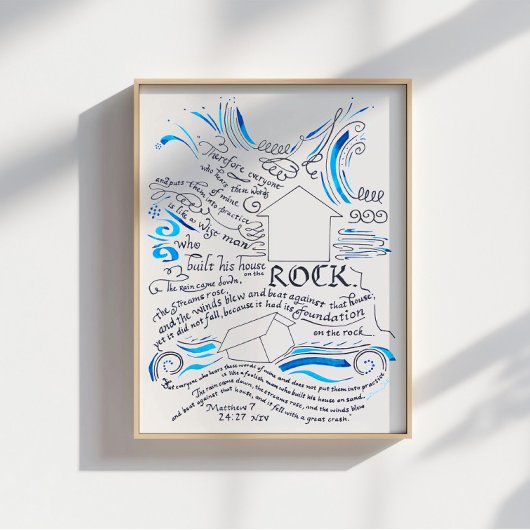 "Therefore everyone
who hears these words
of mine
and puts them into practice
is like a Wise man
who
built his house
on the
ROCK.
The rain came down,
the streams rose,
and the winds blew and beat against that house,
yet it did not fall, because it had its foundation
on the rock
But everyone who hears these words of mine and does not put them into practice
is like a foolish man who built his house on sand.
The rain came down, the streams rose, and the winds blew
and beat against that house, and it fell with a great crash."
Matthew 7
24:27 NIV